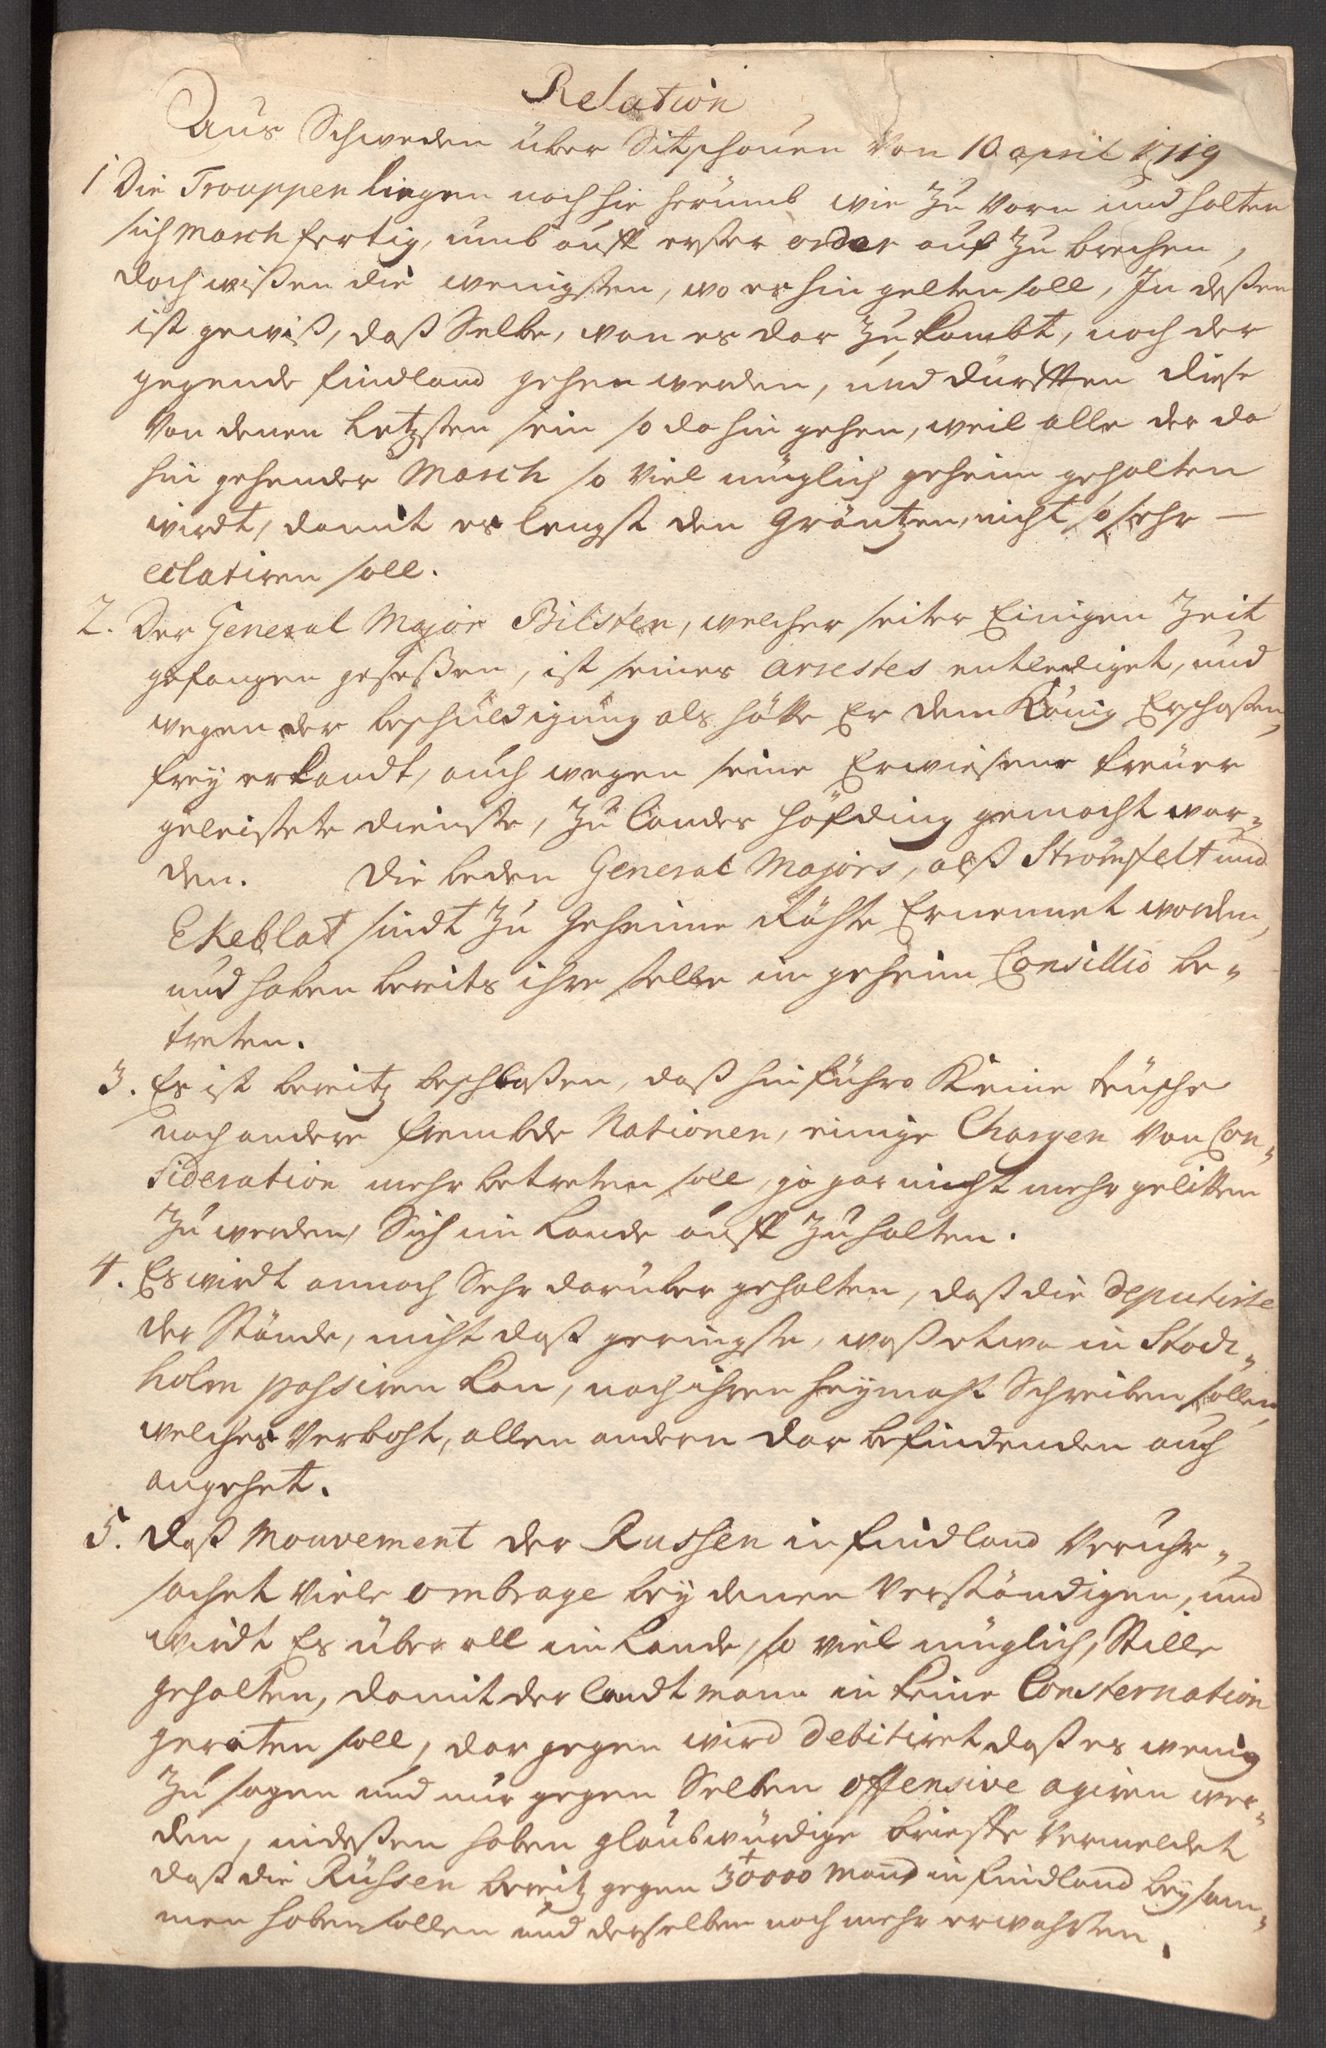 Relation
Aus Schweden über Sitschouen Von 10 april 1719
1 Die Trouppen liegen noch hie herumb wie zu Vorn und halten
sich Masch fertig, umb auff erster order auf zu brechen,
doch wißen die wenigsten, wo es hin gelten soll, In deßen
ist gewiß, daß Selbe, wan es dar zu kombt, nach der
gegende findland gehen werden, und dürfften diese
Von denen Letzsten sein so dahin gehen, weil alle der da
hin gehender Masch so Viel müglich geheim gehalten
wirdt, damit es lengst den Gräntzen, nicht so sehr —
eclatiren soll.
2. Der General Major Bilsten, welcher seiter Einigen Zeit
gefangen geseßen, ist seines arrestes entlediget, und
wegen der beschuldigung als hätte Er dem König Erschoßen,
frey erkandt, auch wegen seine Erwiesene treuer
geleistete dienste, zu Landes höfding gemacht wor¬
den. Die beden General Majors, alß Strömfelt und
Ekeblat sindt zu Geheime Rähte Ernennet worden,
und haben bereits ihre stelle im geheim Consillio be¬
treten.
3. Es ist bereitz beschloßen, daß hinführo Keine teusche
noch andere frembde Nationen, einige Chargen Von Con¬
sideration mehr betreten soll, ja gar nicht mehr gelitten
zu werden, Sich im Lande auff zu halten.
4. Es wirdt annoch Sehr darüber gehalten, daß die deputirte
der Stände, nicht daß geringste, waß etwa in Stock¬
holm passiren kan, nach ihren heymaht Schreiben sollen,
welches Verboht, allen andern dar befindenden auch
angehet.
5. Daß Mouvement der Russen in findland Veruhr¬
sachet Viele ombrage bey denen Verständigen, und
wirdt Es über all im Lande, so viel müglich, Stille
gehalten, damit der landt mann in keine Consternation
geraten soll, dar gegen wird debitiret daß es wenig
zu sagen und nur gegen Selben offensive agiren wer¬
den, indeßen haben glaubwürdige brieffe Vermeldet
daß die Russen bereitz gegen 30000 Mand in findland beysam¬
men haben sollen und derselben noch mehr erwahrten.